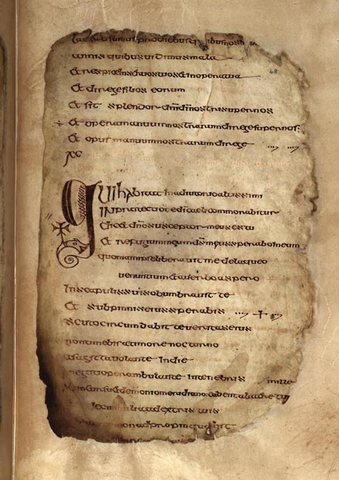 annis quibus uidimus mala
Et respice in seruos tuos et in opera tua
Et dirige filios eorum
Et sit splendor dni di nostri super nos
Et opera manuum nostrarum dirige super nos
Et opus manuum nostrarum dirige
xc
Qui habitat in adiutorio altissimi
In protectione di caeli commorabitur
dicet dno susceptor meus es tu
Et refugium meum ds meus sperabo in eum
quoniam ipse liberauit me de laqueo
uenantium et a uerbo aspero
In scapulis suis obumbrauit te
Et sub pinnis eius sperabis
scuto circumdabit te ueritas eius
non timebis a timore nocturno
a sagitta uolante in die
negotio perambulante in tenebris mille
demonio meridiano cadent a latere tuo
decem milia a dextris tuis
non adpropinquabit